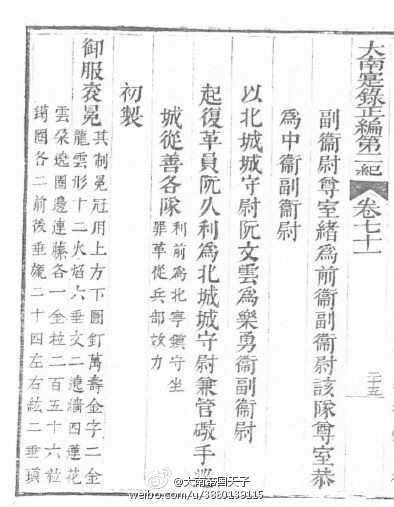 大南寔錄正編第二紀 卷七十一 二十五
副衞尉尊室緒為前衞副衞尉該隊尊室恭
為中衞副衞尉
以北城城守尉阮文雲為樂勇衞副衞尉
起復革員阮久利為北城城守尉兼管礮手
城從善各隊
利前為北寧鎮守坐
罪革從兵部效力
初製
御服衮冕
其制冕冠用上方下圓釘萬壽金字二金
龍雲形十二火焰六垂文二遶墻四蓮花
雲朶遶圈邊連藤各一金粒二百五十六粒
圈各二前後垂旒二十四左右紘二垂瑱
@大南帝国天子
weibo.com/u/3880139115